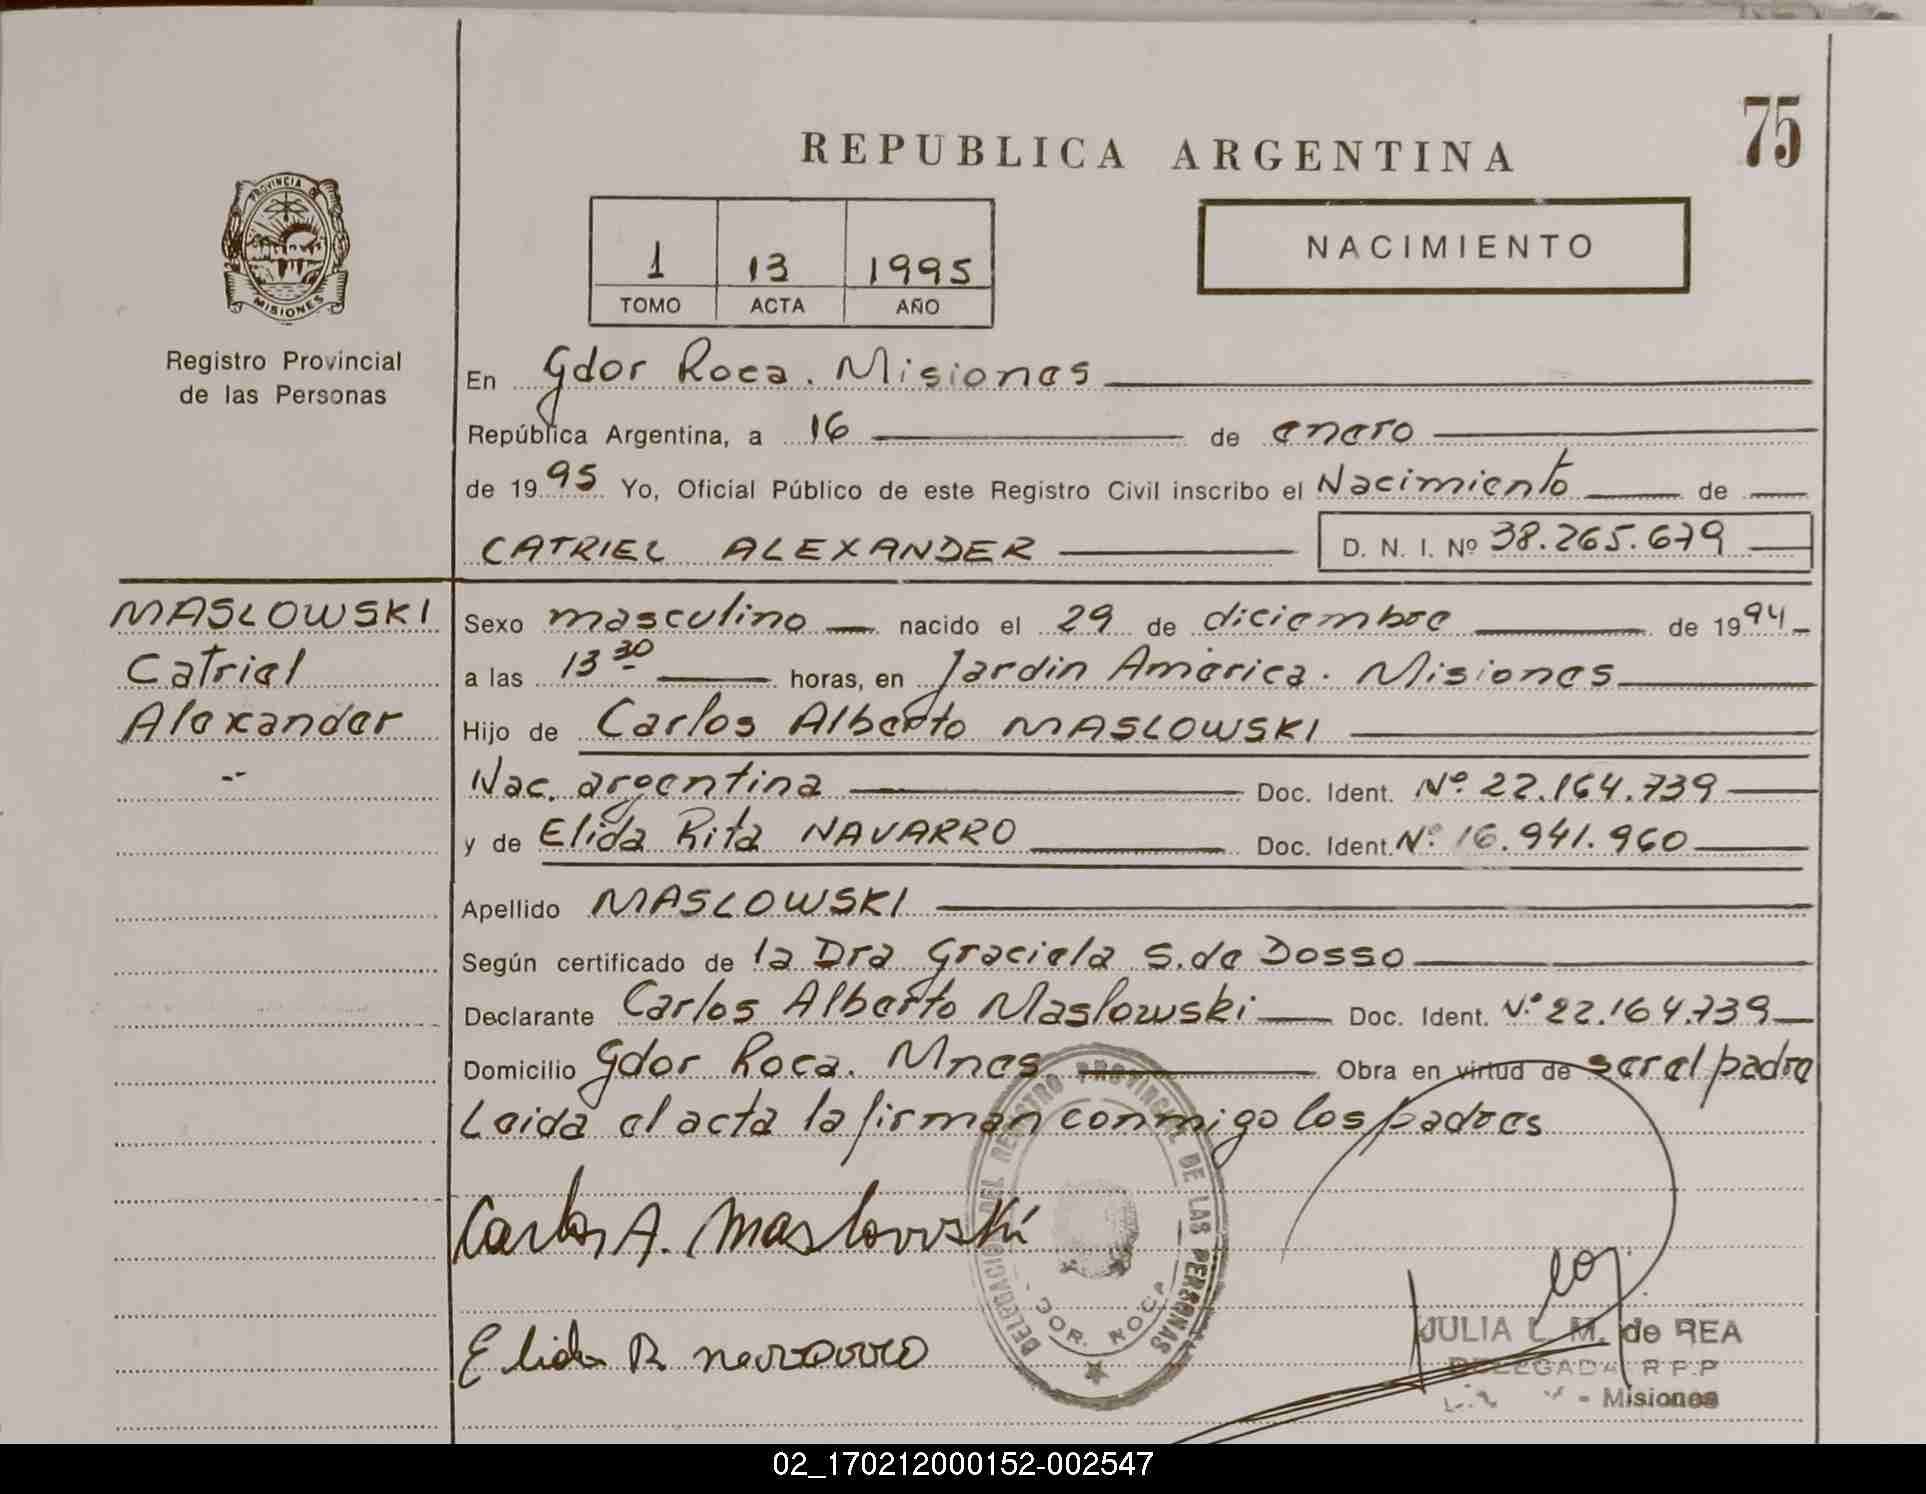 75
REPUBLICA ARGENTINA
PROVINCIA DE
MISIONES
1 13 1995
TOMO ACTA AÑO
NACIMIENTO
Registro Provincial
de las Personas
En Gdor Roca. Misiones
República Argentina, a 16 de enero
de 1995 Yo, Oficial Público de este Registro Civil inscribo el Nacimiento de
CATRIEL ALEXANDER D. N. I. Nº 38.265.679
MASLOWSKI
Catriel
Alexander
Sexo masculino nacido el 29 de diciembre de 1994
a las 13 30 horas, en Jardin América. Misiones
Hijo de Carlos Alberto MASLOWSKI
Nac. argentina Doc. Ident. Nº 22.164.739
y de Elida Rita NAVARRO Doc. Ident. Nº 16.941.960
Apellido MASLOWSKI
Según certificado de la Dra Graciela S. de Dosso
Declarante Carlos Alberto Maslowski Doc. Ident. Nº 22.164.739
Domicilio Gdor Roca. Mnes Obra en virtud de ser el padre
Leida el acta la firman conmigo los padres
Carlos A. Maslowski
Elida R navarro
DELEGACION DEL REGISTRO PROVINCIAL DE LAS PERSONAS
GDOR. ROCA
JULIA L. M. de REA
DELEGADA R.P.P
- Misiones
02_170212000152-002547